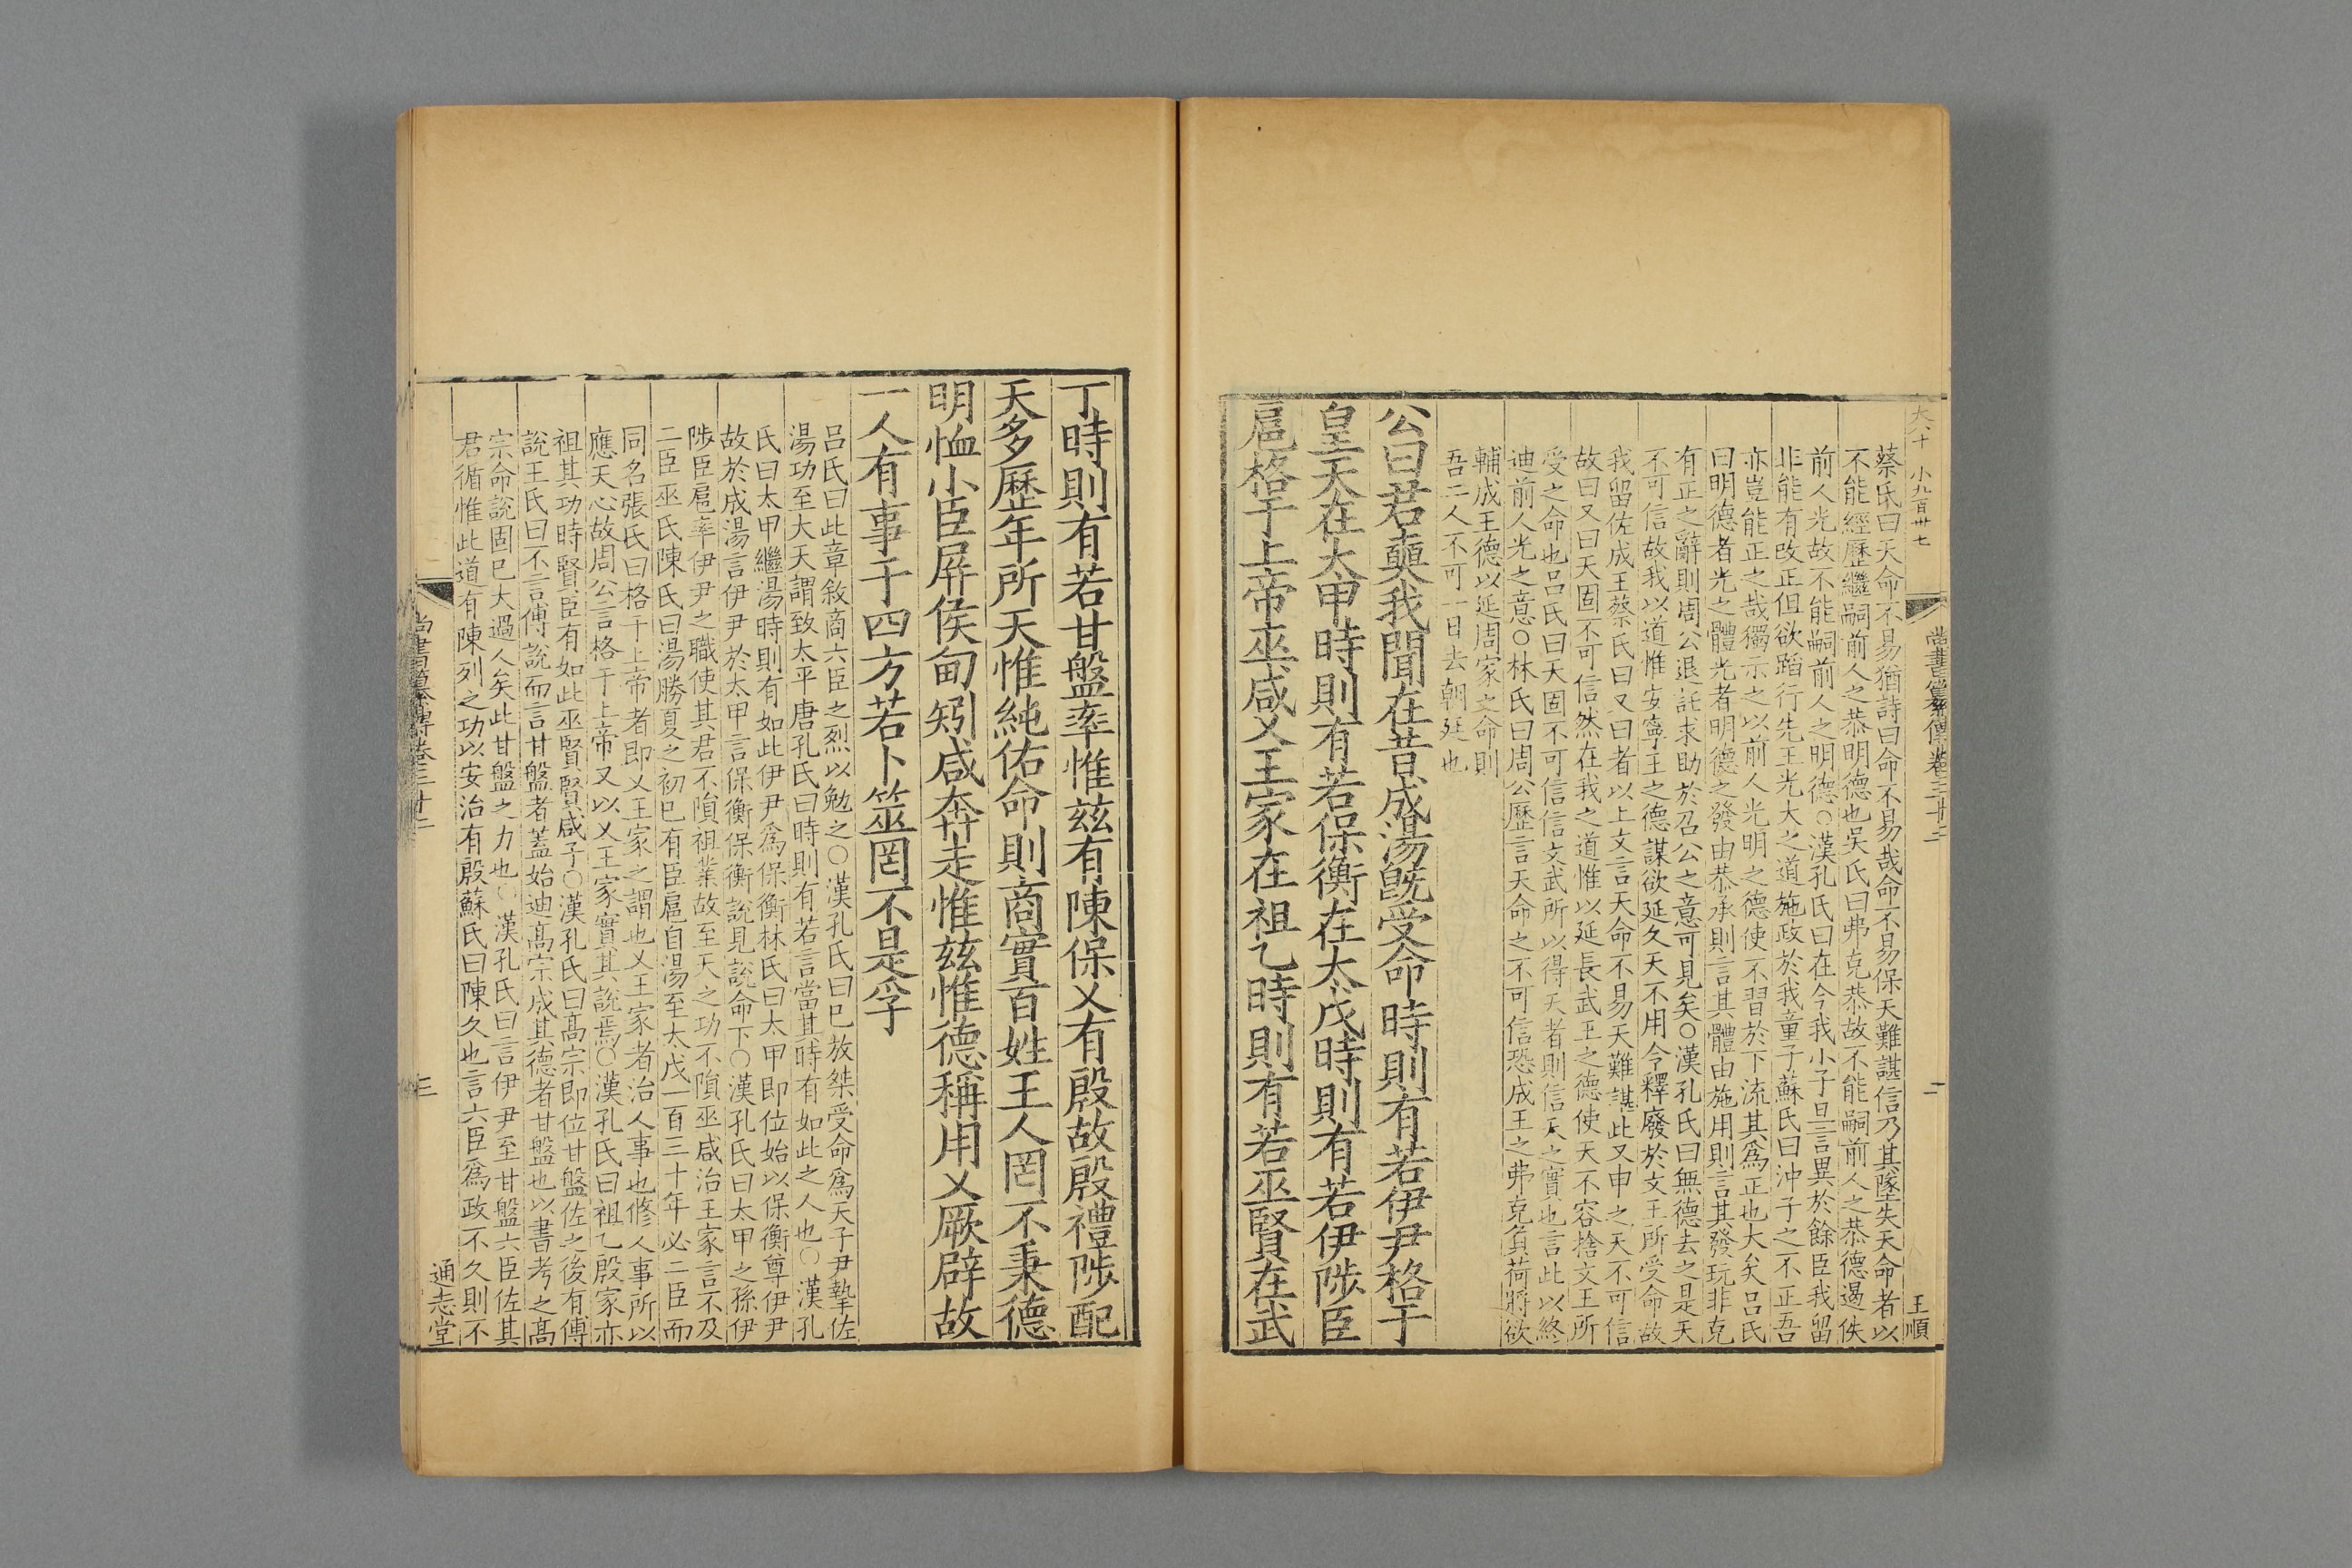 大六十　小九百卅七
尚書纂傳卷三十二
二
王順
蔡氏曰天命不易猶詩曰命不易哉命不易保天難諶信乃其墜失天命者以
不能經歷繼嗣前人之恭明德也吳氏曰弗克恭故不能嗣前人之恭德遏佚
前人光故不能嗣前人之明德○漢孔氏曰在今我小子旦言異於餘臣我留
非能有改正但欲蹈行先王光大之道施政於我童子蘇氏曰沖子之不正吾
亦豈能正之哉獨示之以前人光明之德使不習於下流其爲正也大矣呂氏
曰明德者光之體光者明德之發由恭承則言其體由施用則言其發玩非克
有正之辭則周公退託求助於召公之意可見矣○漢孔氏曰無德去之是天
不可信故我以道惟安寧王之德謀欲延久天不用令釋廢於文王所受命故
我留佐成王蔡氏曰又曰者以上文言天命不易天難諶此又申之天不可信
故曰又曰天固不可信然在我之道惟以延長武王之德使天不容捨文王所
受之命也呂氏曰天固不可信信文武所以得天者則信天之實也言此以終
迪前人光之意○林氏曰周公歷言天命之不可信恐成王之弗克負荷將欲
輔成王德以延周家文命則
吾二人不可一日去朝廷也
公曰君奭我聞在昔成湯旣受命時則有若伊尹格于
皇天在太甲時則有若保衡在太戊時則有若伊陟臣
扈格于上帝巫咸乂王家在祖乙時則有若巫賢在武
丁時則有若甘盤率惟茲有陳保乂有殷故殷禮陟配
天多歷年所天惟純佑命則商實百姓王人罔不秉德
明恤小臣屛侯甸矧咸奔走惟茲惟德稱用乂厥辟故
一人有事于四方若卜筮罔不是孚
呂氏曰此章敘商六臣之烈以勉之○漢孔氏曰已放桀受命爲天子尹摯佐
湯功至大天謂致太平唐孔氏曰時則有若言當其時有如此之人也○漢孔
氏曰太甲繼湯時則有如此伊尹爲保衡林氏曰太甲即位始以保衡尊伊尹
故於成湯言伊尹於太甲言保衡保衡說見說命下○漢孔氏曰太甲之孫伊
陟臣扈率伊尹之職使其君不隕祖業故至天之功不隕巫咸治王家言不及
二臣巫氏陳氏曰湯勝夏之初已有臣扈自湯至太戊一百三十年必二臣而
同名張氏曰格于上帝者即乂王家之謂也乂王家者治人事也修人事所以
應天心故周公言格于上帝又以乂王家實其說焉○漢孔氏曰祖乙殷家亦
祖其功時賢臣有如此巫賢賢咸子○漢孔氏曰高宗即位甘盤佐之後有傅
說王氏曰不言傅說而言甘盤者蓋始迪高宗成其德者甘盤也以書考之高
宗命說固已大過人矣此甘盤之力也○漢孔氏曰言伊尹至甘盤六臣佐其
君循惟此道有陳列之功以安治有殷蘇氏曰陳久也言六臣爲政不久則不
尚書纂傳卷三十二
三
通志堂